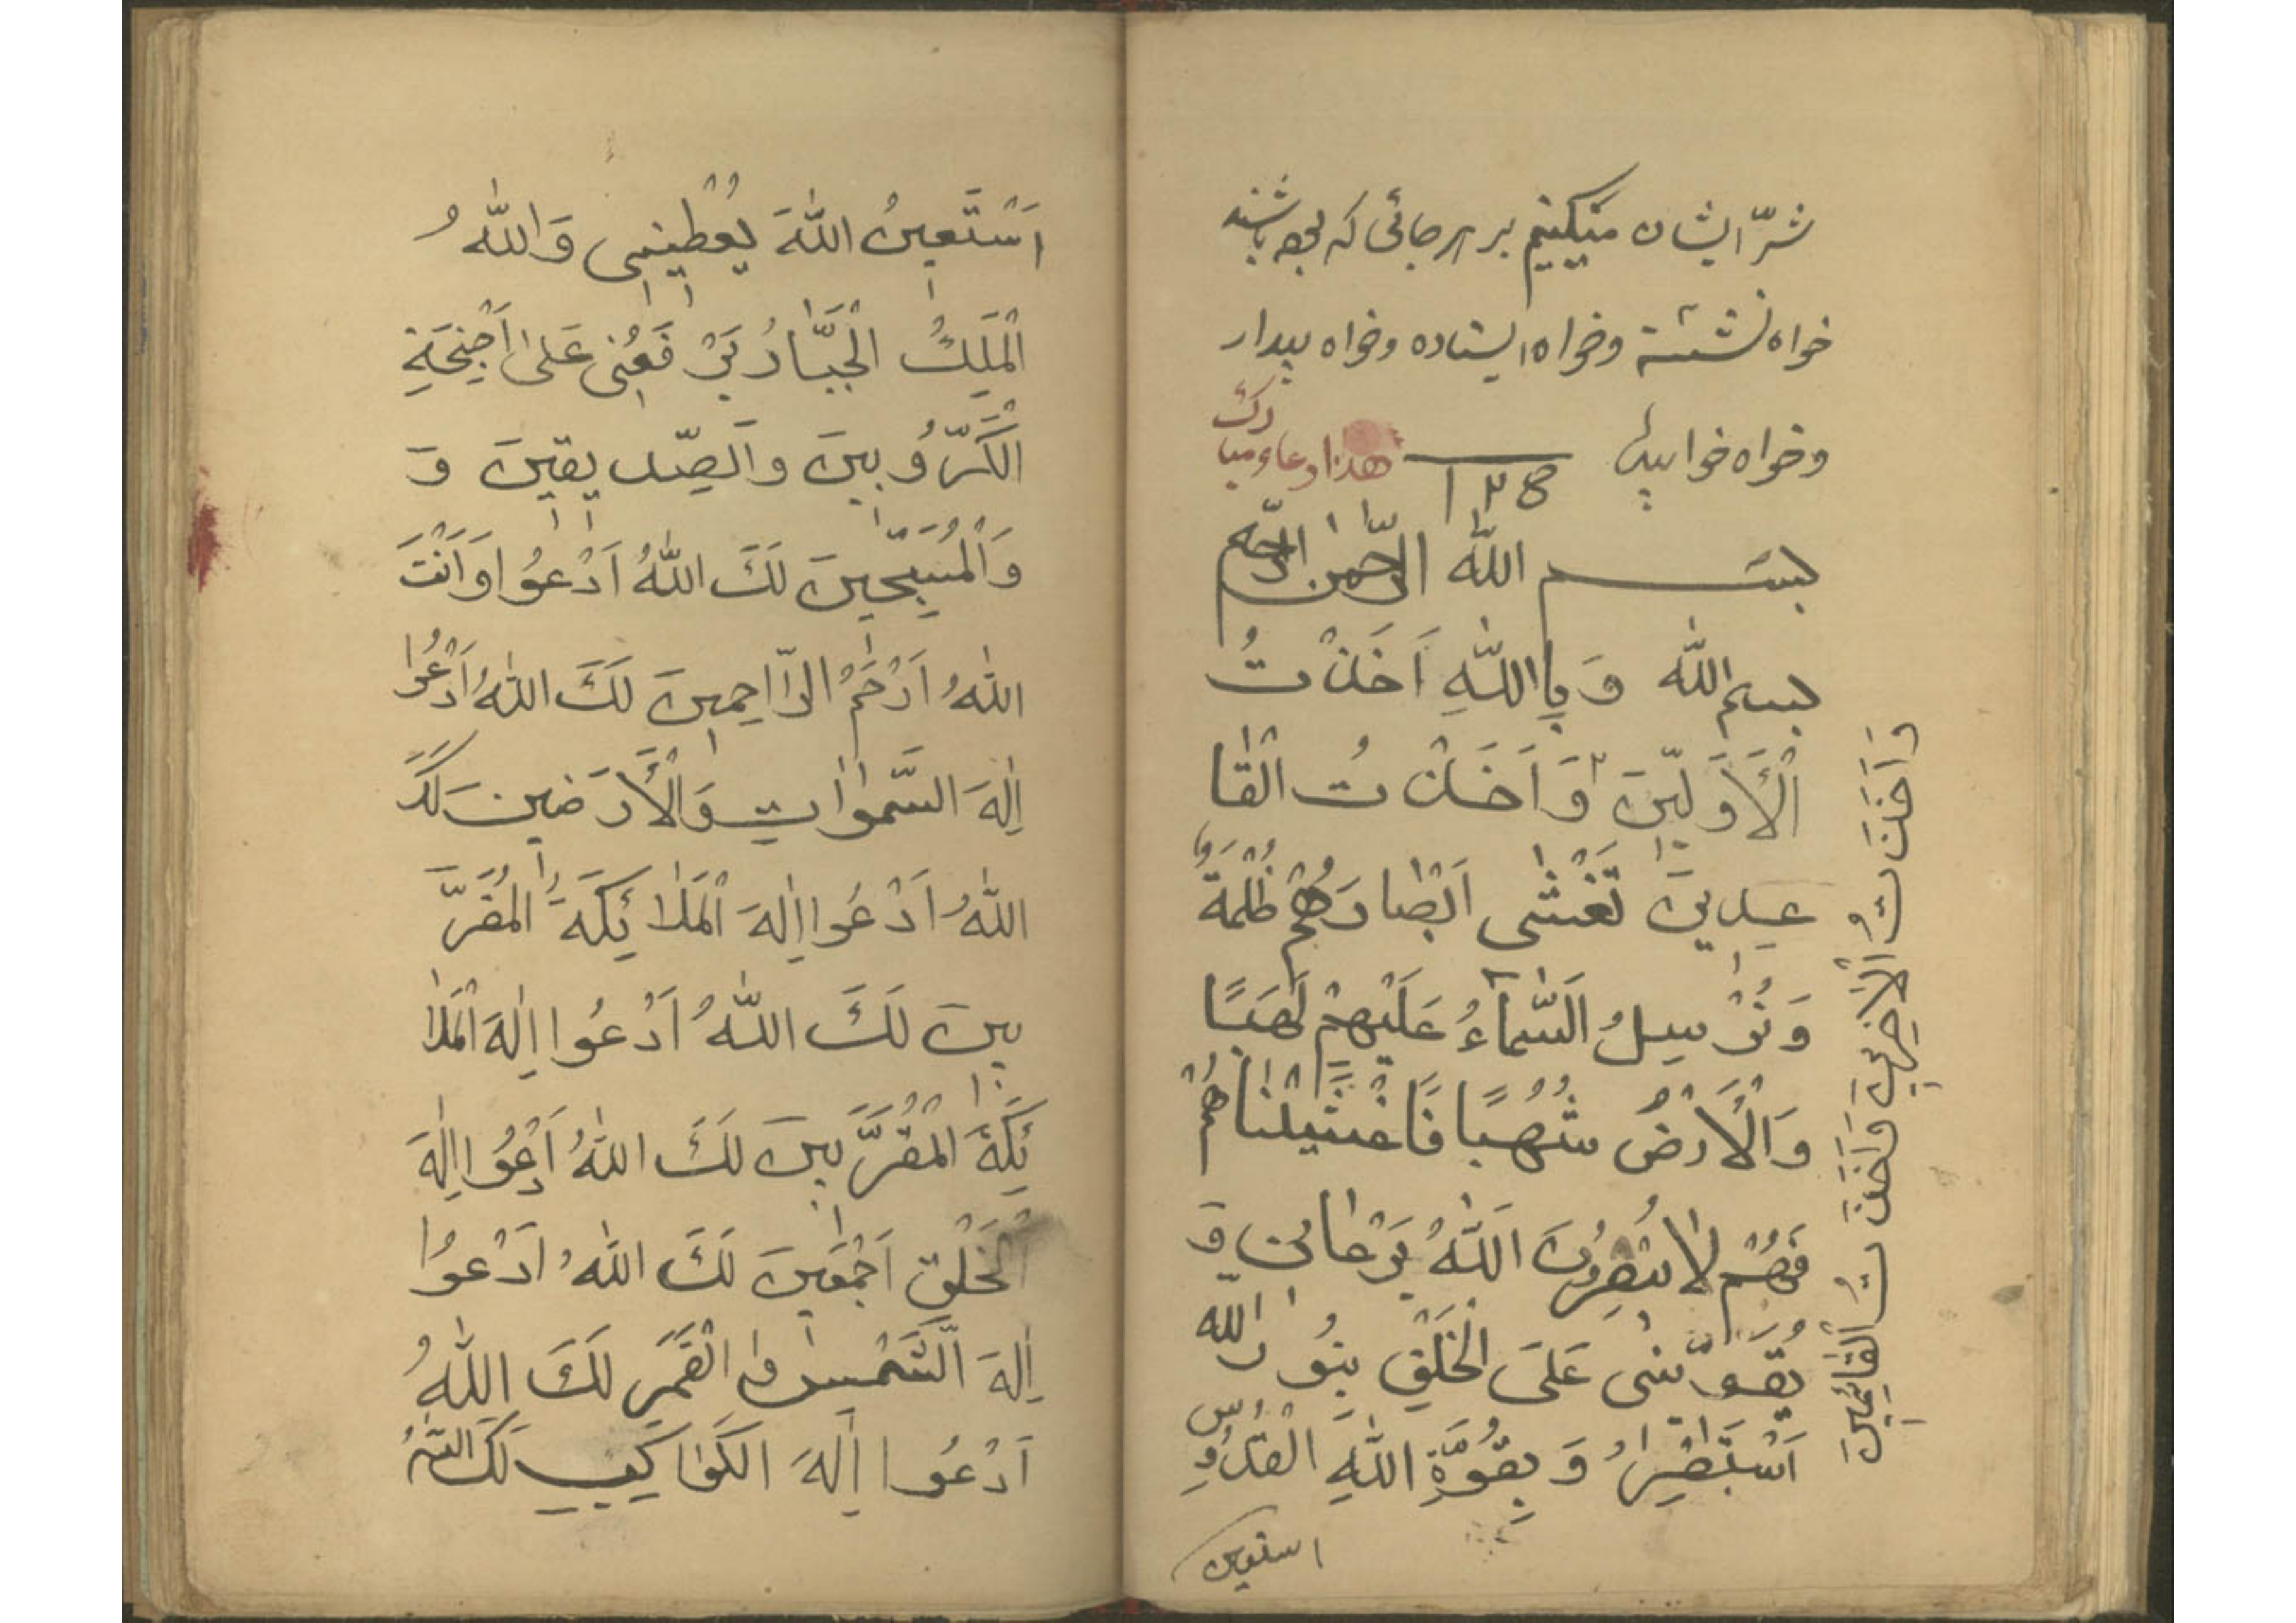 شرّ ایشان میکنیم بر هر جائی که بوده باشند
خواه نشسته وخواه ایستاده وخواه بیدار
وخواه خوابیده
هذا دعاء مبارك
بسم الله الرّحمن الرّحیم
بسم الله وَ بِاللّٰهِ اَخَذْتُ
الْاَوَّلِیْنَ وَ اَخَذْتُ الْقٰا
عِدِیْنَ تَغْشٰی اَبْصٰارَهُمْ ظُلْمَةٌ
وَ تُرْسِلُ السَّمٰآءُ عَلَیْهِمْ لَهَبًا
وَ الْاَرْضُ شُهُبًا فَاَغْشَیْنٰاهُمْ
فَهُمْ لٰا یُبْصِرُونَ اَللّٰهُ یَرْعٰانِی وَ
یُقَوِّیْنِی عَلَی الْخَلْقِ بِنُورِ اللّٰه
اَسْتَبْصِرُ وَ بِقُوَّةِ اللّٰهِ الْقُدُّوسِ
استعین
وَ اَخَذْتُ الْاٰخِرِیْنَ وَ اَخَذْتُ الْقٰائِمِیْنَ
اَسْتَعِیْنُ اللّٰهَ یُعْطِیْنِی وَ اللّٰهُ
الْمَلِكُ الْجَبَّارُ یَرْفَعُنِی عَلٰی اَجْنِحَةِ
الْكَرُّوبِیْنَ وَ الصِّدِّیقِیْنَ وَ
وَ الْمُسَبِّحِیْنَ لَكَ اللّٰهُ اَدْعُوا وَ اَنْتَ
اللّٰهُ اَرْحَمُ الرّٰاحِمِیْنَ لَكَ اللّٰهُ اَدْعُوا
اِلٰهَ السَّمٰوٰاتِ وَ الْاَرَضِیْنَ لَكَ
اللّٰهُ اَدْعُوا اِلٰهَ الْمَلٰائِكَةِ الْمُقَرَّ
بِیْنَ لَكَ اللّٰهُ اَدْعُوا اِلٰهَ الْمَلٰا
ئِكَةِ الْمُقَرَّبِیْنَ لَكَ اللّٰهُ اَدْعُوا اِلٰهَ
الْخَلْقِ اَجْمَعِیْنَ لَكَ اللّٰهُ اَدْعُوا
اِلٰهَ الشَّمْسِ وَ الْقَمَرِ لَكَ اللّٰهُ
اَدْعُوا اِلٰهَ الْكَوٰاكِبِ لَكَ اللّٰهُ